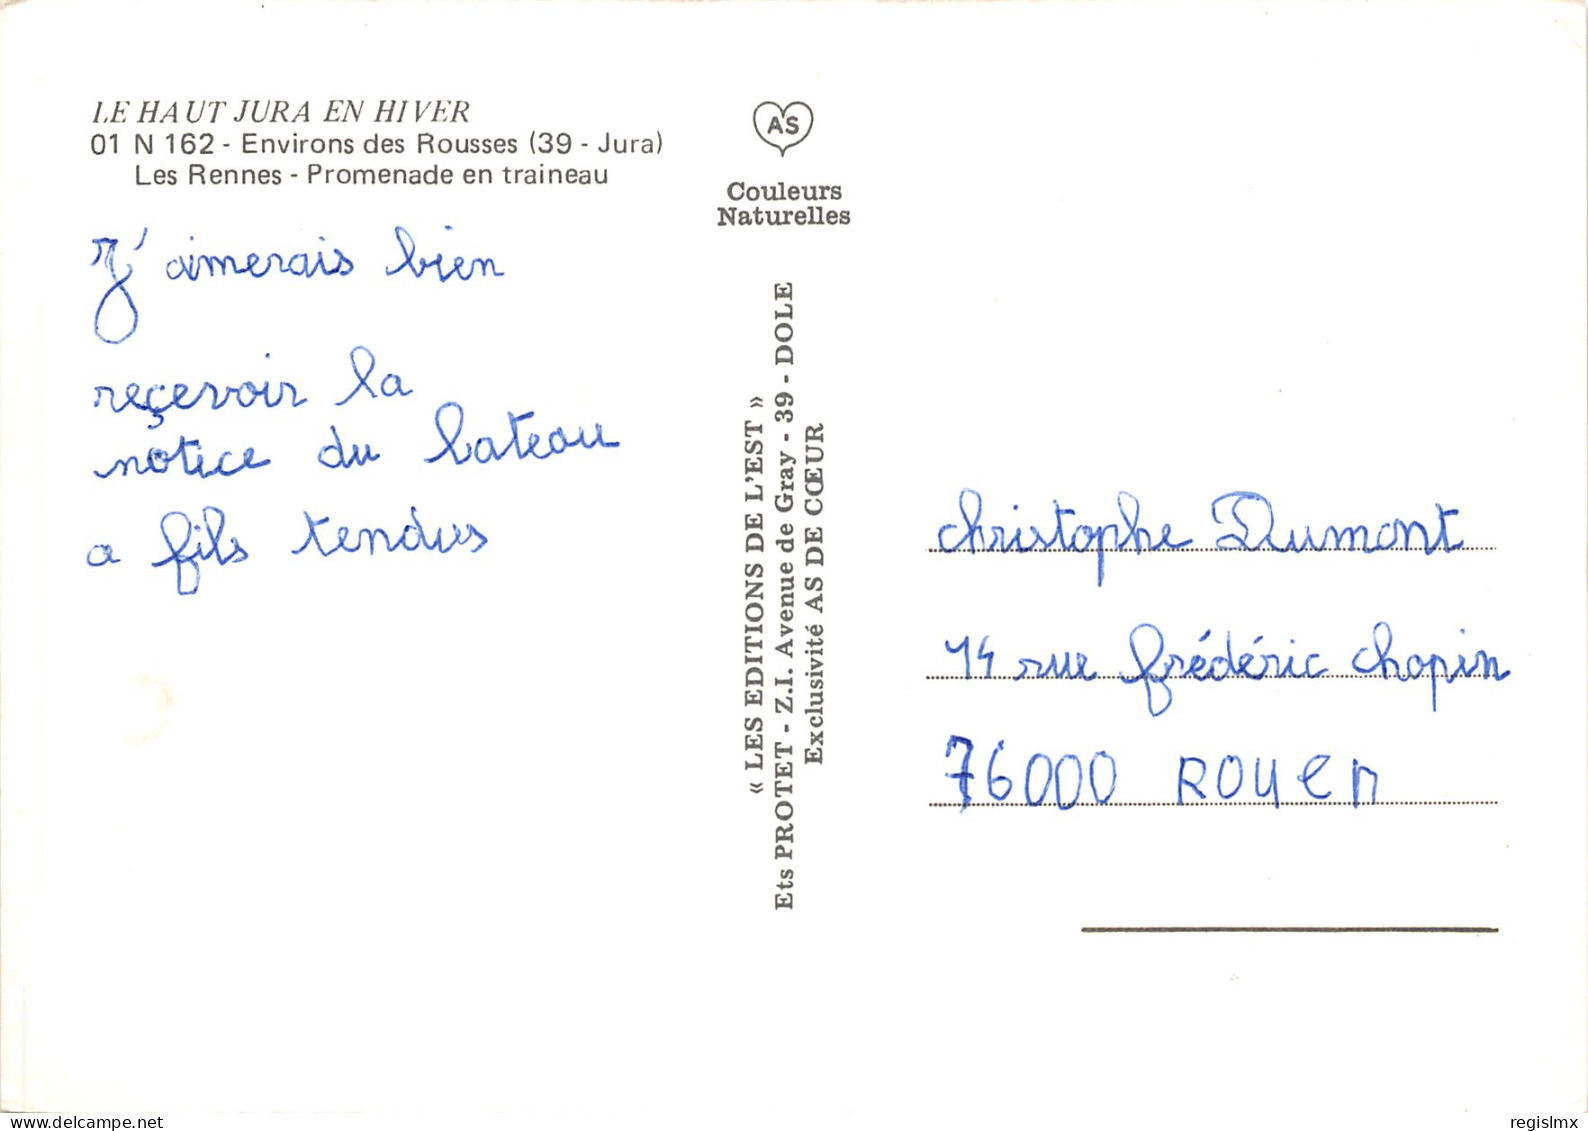 LE HAUT JURA EN HIVER
01 N 162 - Environs des Rousses (39 - Jura)
Les Rennes - Promenade en traineau
J'aimerais bien
reçevoir la
notice du bateau
a fils tendus
AS
Couleurs
Naturelles
« LES EDITIONS DE L'EST »
Ets PROTET - Z.I. Avenue de Gray - 39 - DOLE
Exclusivité AS DE CŒUR
christophe Dumont
14 rue frédéric chopin
76000 ROUEN
regislmx